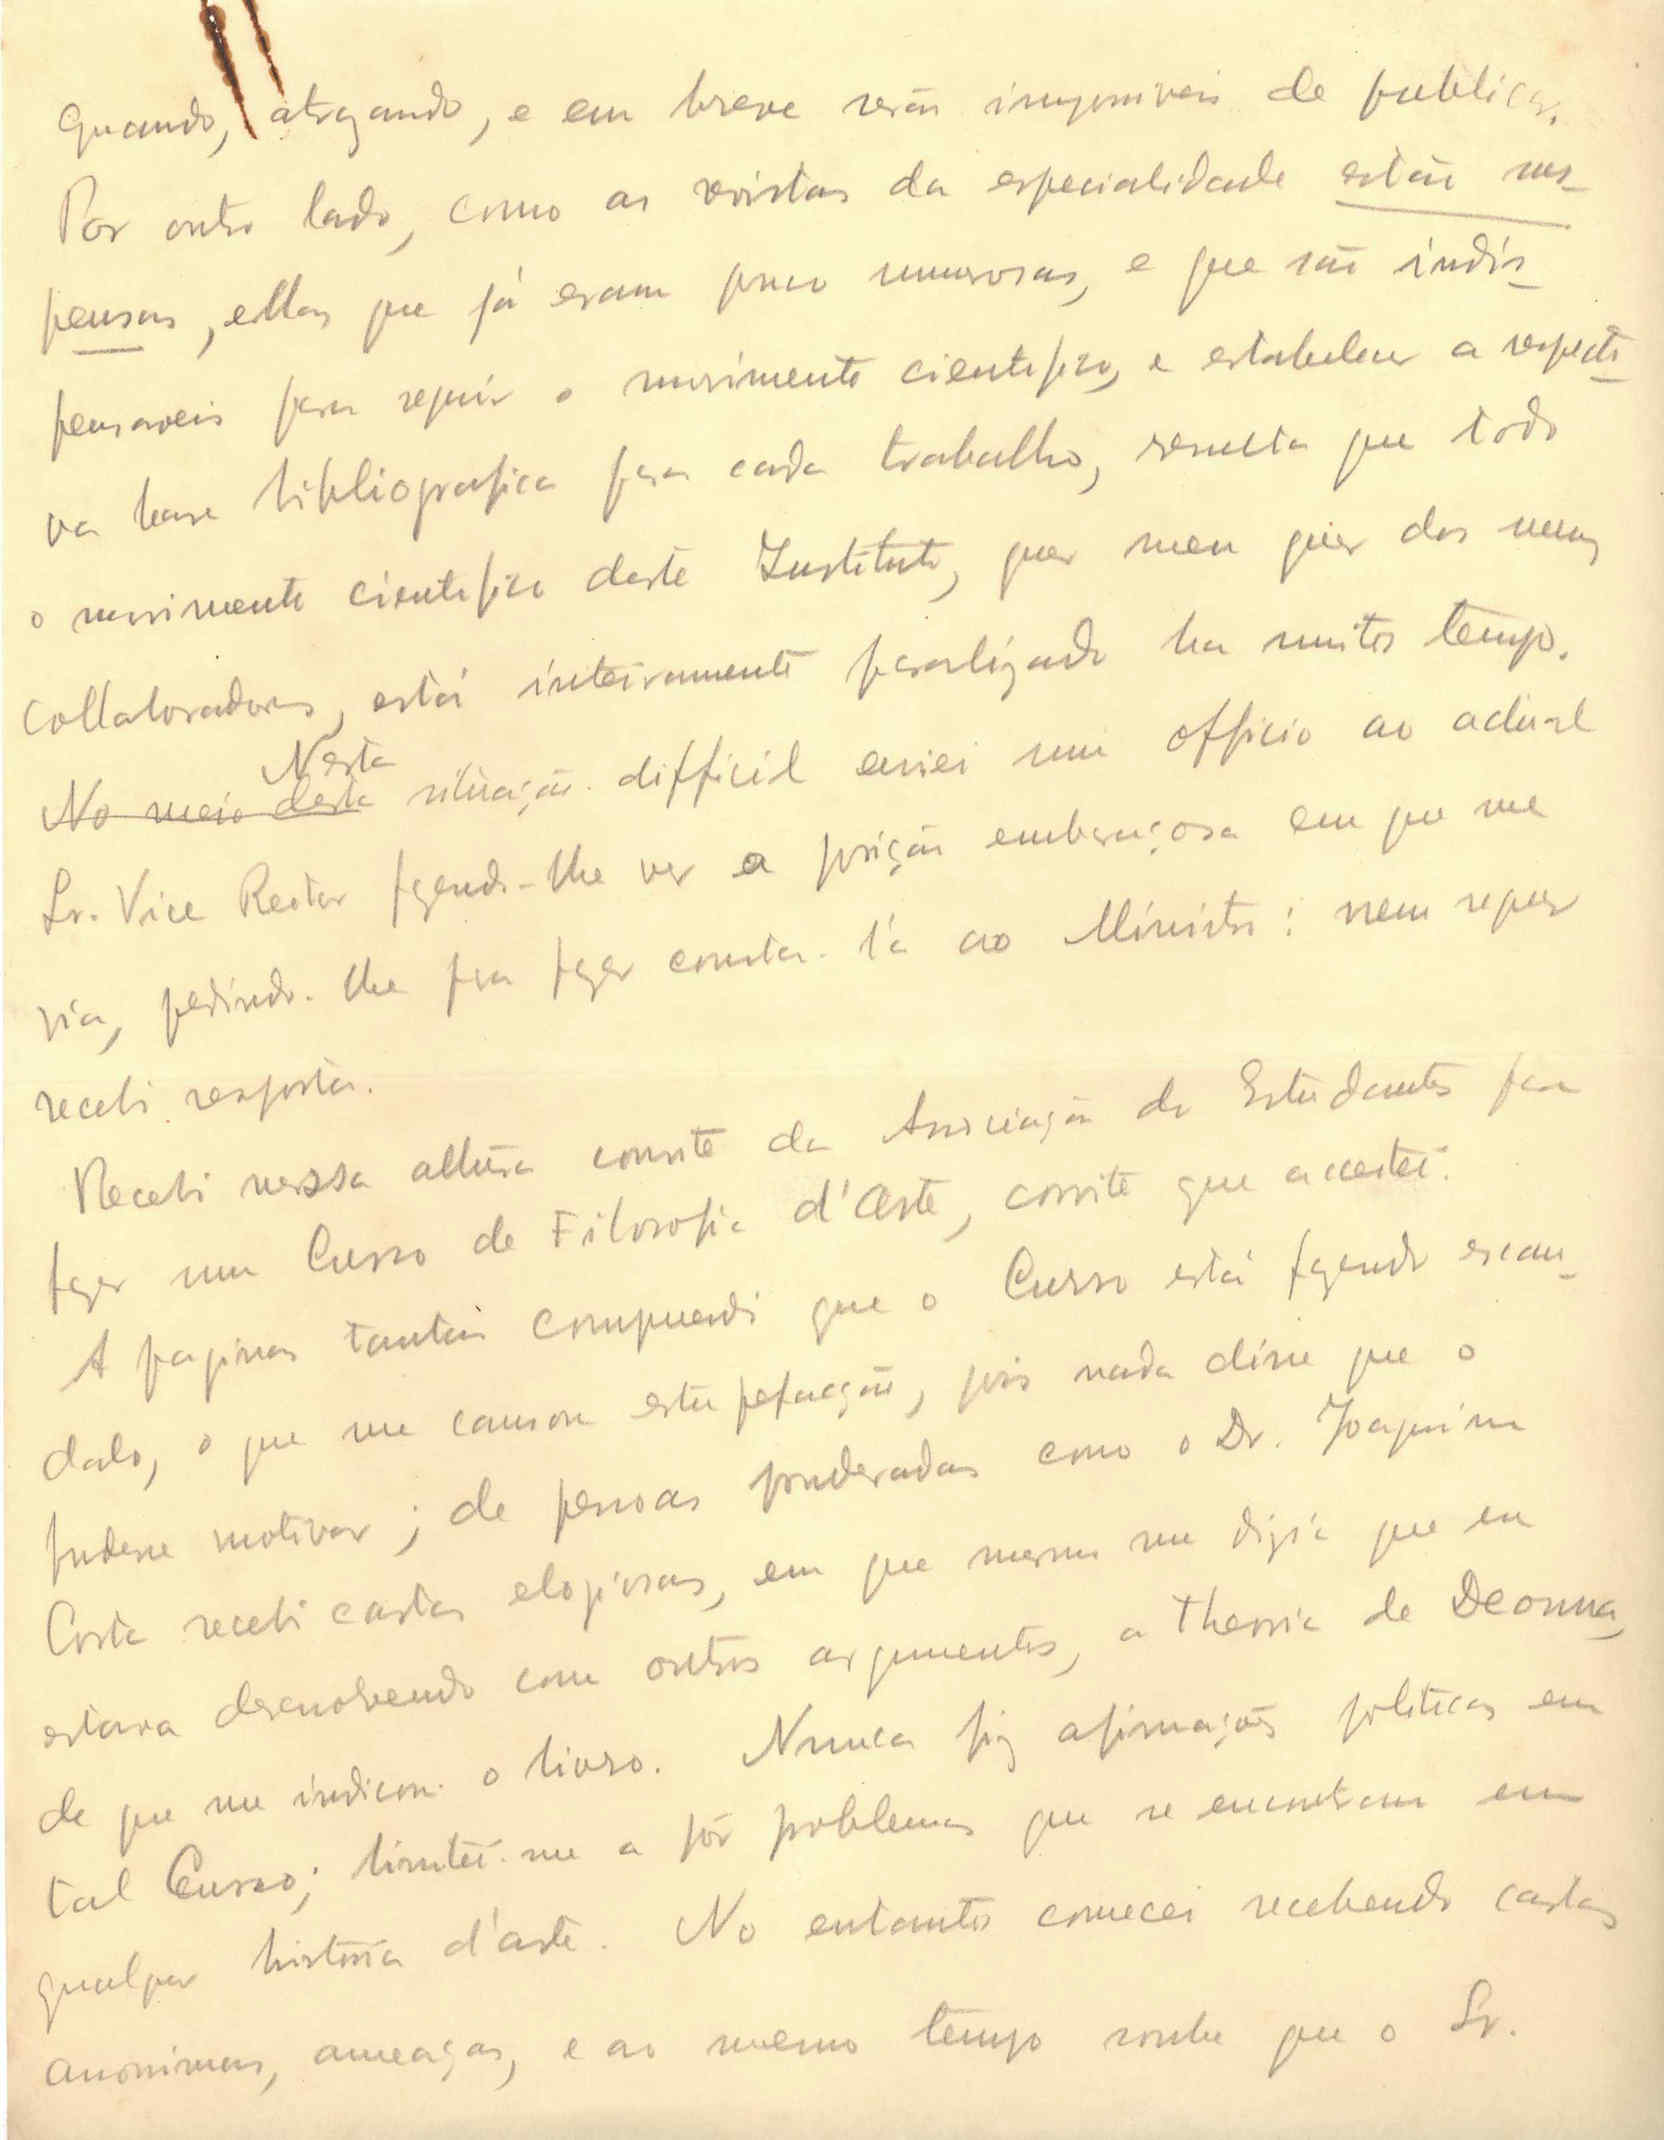 quando, atrazando, e em breve serão impossiveis de publicar.
Por outro lado, como as revistas da especialidade estão sus-
pensas, ellas que já eram pouco numerosas, e que são indis-
pensaveis para seguir o movimento cientifico, e estabelecer a respecti-
va base bibliografica para cada trabalho, resulta que todo
o movimento cientifico deste Instituto, quer meu quer dos meus
collaboradores, está inteiramente paralizado ha muito tempo.
No meio desta Nesta situação difficil enviei um officio ao actual
Sr. Vice Reitor fazendo-lhe ver a posição embaraçosa em que me
via, pedindo-lhe para fazer constar lá ao Ministro: nem sequer
recebi resposta.
Recebi nessa altura convite da Associação de Estudantes para
fazer um Curso de Filosofia d'Arte, convite que acceitei.
A paginas tantas compreendi que o Curso está fazendo escan-
dalo, o que me causou estupefacção, pois nada disse que o
pudesse motivar; de pessoas ponderadas como o Dr. Joaquim
Costa recebi cartas elogiosas, em que mesmo me dizia que eu
estava desenvolvendo com outros argumentos, a theoria de Deonna,
de que me indicou o livro. Nunca fiz afirmações politicas em
tal Curso; limitei-me a pôr problemas que se encontram em
qualquer historia d'arte. No entanto comecei recebendo cartas
anonimas, ameaças, e ao mesmo tempo soube que o Sr.